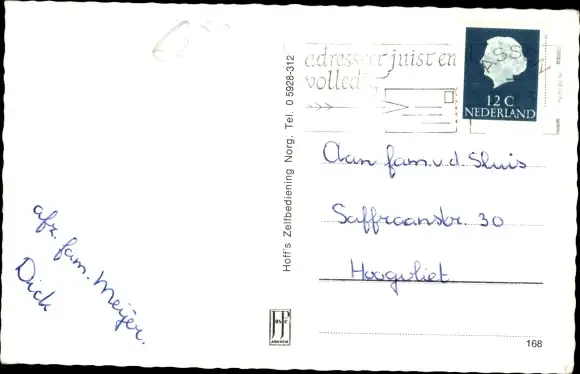 adresseer juist en
volledig
ASS
12 C
NEDERLAND
Aan fam. v. d. Sluis
Saffraanstr. 30
Hoogvliet
afz. fam. Meijer.
Dick
Hoff's Zelfbediening Norg, Tel. 0 5928-312
168